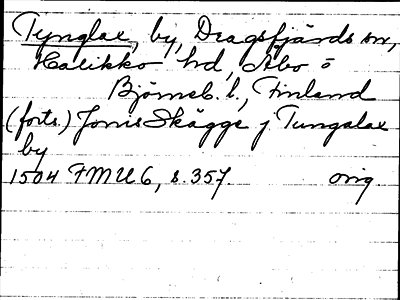 Tynglax, by, Dragsfjärds sn,
Halikko hd, Åbo o
Björneb. l., Finland
(forts.) Jönis Skägge j Tungalax
by
1504 FMU 6, s. 357. orig